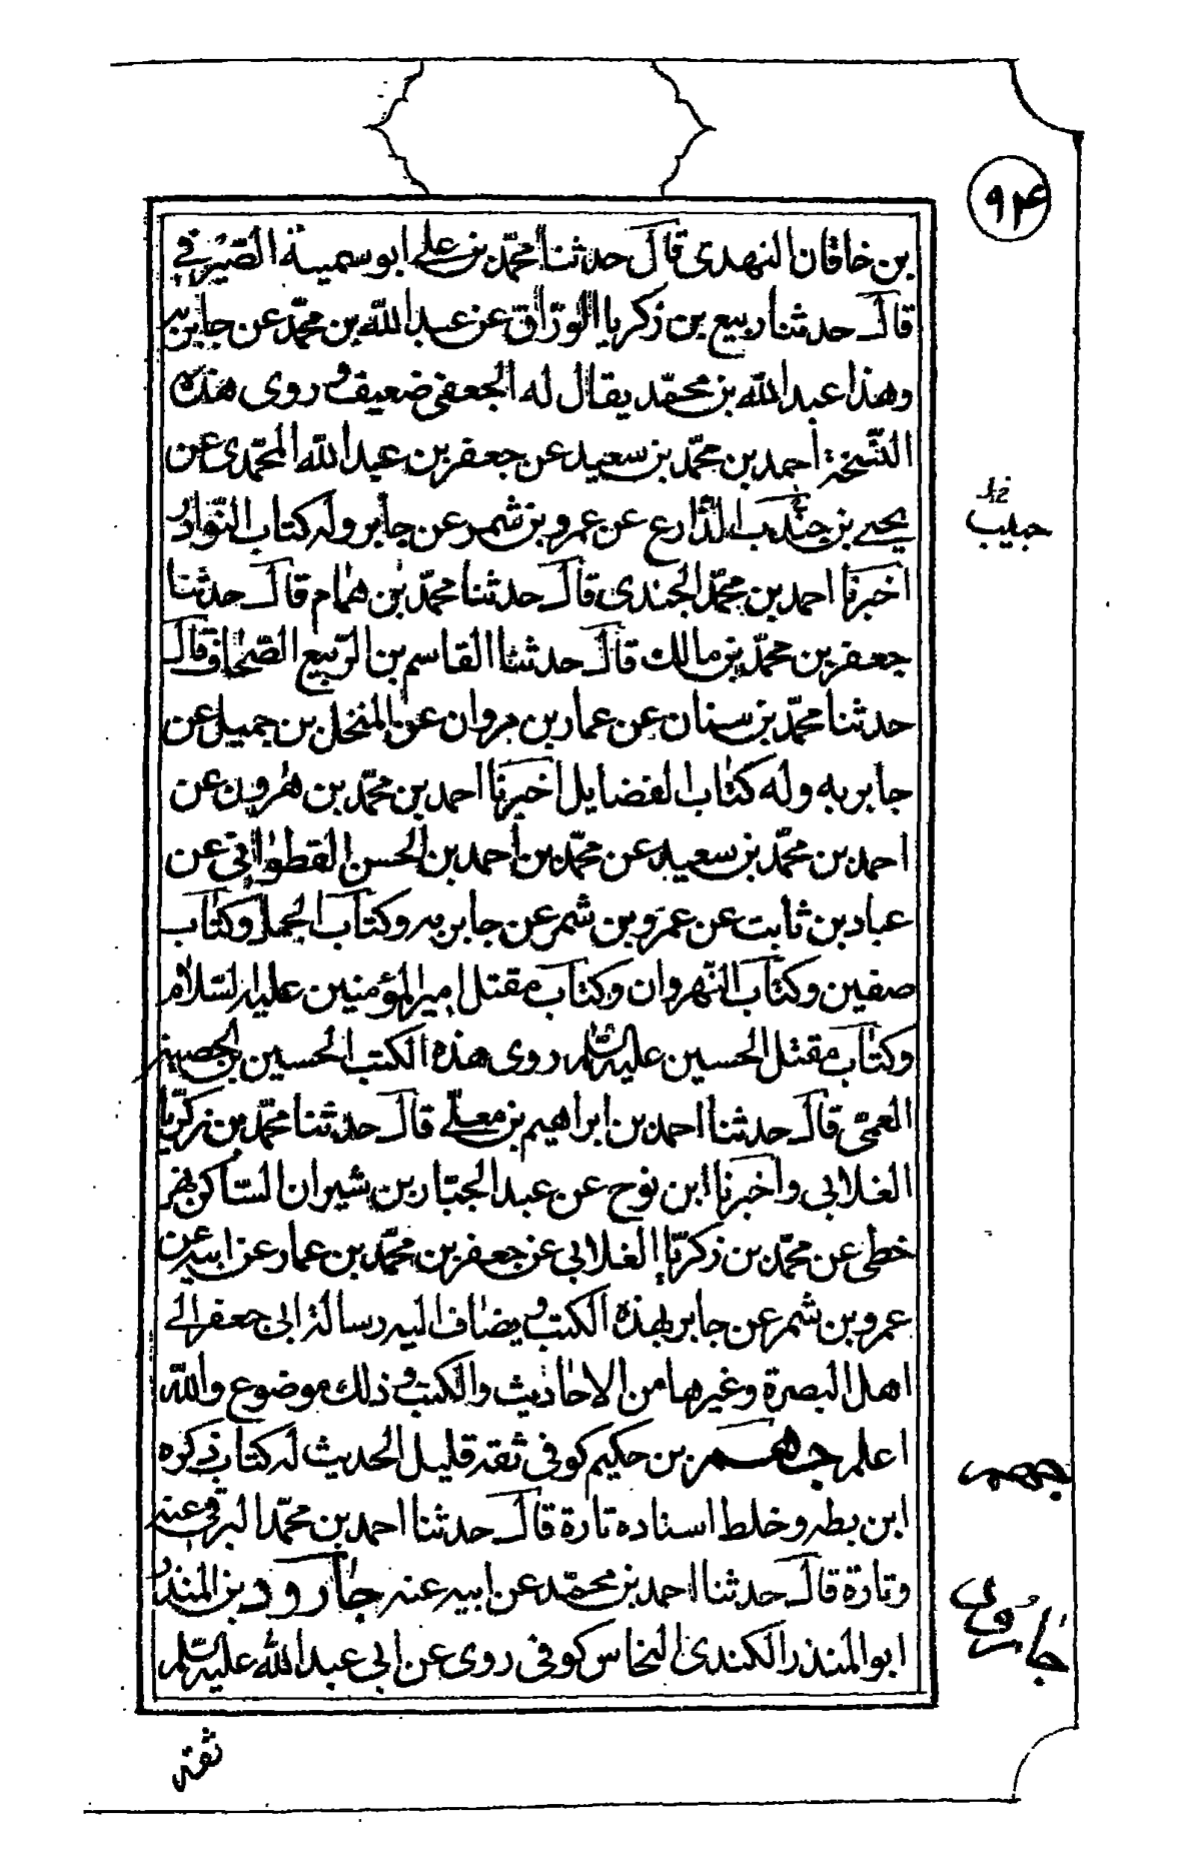 ٩٤
بن خاقان النهدى قال حدثنا محمّد بن على ابو سمينة الصّيرفى
قال حدثنا ربيع بن زكريا الورّاق عن عبد الله بن محمّد عن جابر به
وهذا عبد الله بن محمّد يقال له الجعفى ضعيف وروى هذه
النّسخة احمد بن محمّد بن سعيد عن جعفر بن عبد الله المحمّدى عن
يحيى بن جندب الذّارع عن عمرو بن شمر عن جابر وله كتاب النّوادر
حبيب خل
اخبرنا احمد بن محمّد الجندى قال حدثنا محمّد بن همام قال حدثنا
جعفر بن محمّد بن مالك قال حدثنا القاسم بن الرّبيع الصّحاف قال
حدثنا محمّد بن سنان عن عمار بن مروان عن المنخل بن جميل عن
جابر به وله كتاب الفضايل اخبرنا احمد بن محمّد بن هرون عن
احمد بن محمّد بن سعيد عن محمّد بن احمد بن الحسن القطوانى عن
عباد بن ثابت عن عمرو بن شمر عن جابر به وكتاب الجمل وكتاب
صفين وكتاب النّهروان وكتاب مقتل امير المؤمنين عليه السّلام
وكتاب مقتل الحسين عليه السّلم روى هذه الكتب الحسين بن الحصين
العمّى قال حدثنا احمد بن ابراهيم بن معلّى قال حدثنا محمّد بن زكريّا
الغلابى واخبرنا ابن نوح عن عبد الجبّار بن شيران السّاكن بنهر
خطى عن محمّد بن زكريّا الغلابى عن جعفر بن محمّد بن عمار عن ابيه عن
عمرو بن شمر عن جابر بهذه الكتب ويضاف اليه رسالة ابى جعفر الى
اهل البصرة وغيرها من الاحاديث والكتب وذلك موضوع والله
اعلم جهم بن حكيم كوفى ثقة قليل الحديث له كتاب ذكره
جهم
ابن بطه وخلط اسناده تارة قال حدثنا احمد بن محمّد البرقى عنه
وتارة قال حدثنا احمد بن محمّد عن ابيه عنه جارود بن المنذر
جارود
ابو المنذر الكندى النخاس كوفى روى عن ابى عبد الله عليه السّلم
ثقة